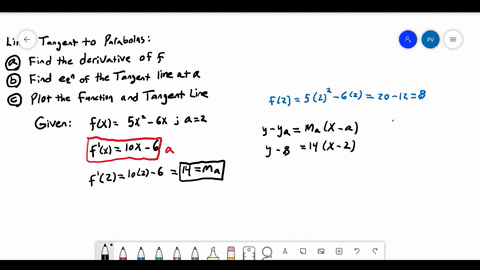 Line Tangent to Parabolas:
(a) Find the derivative of f
(b) Find eqⁿ of the Tangent line at a
(c) Plot the function and Tangent Line
Given: f(x) = 5x² - 6x ; a = 2
f'(x) = 10x - 6 a
f'(2) = 10(2) - 6 = 14 = mₐ
f(2) = 5(2)² - 6(2) = 20 - 12 = 8
y - yₐ = mₐ(x - a)
y - 8 = 14(x - 2)
PV